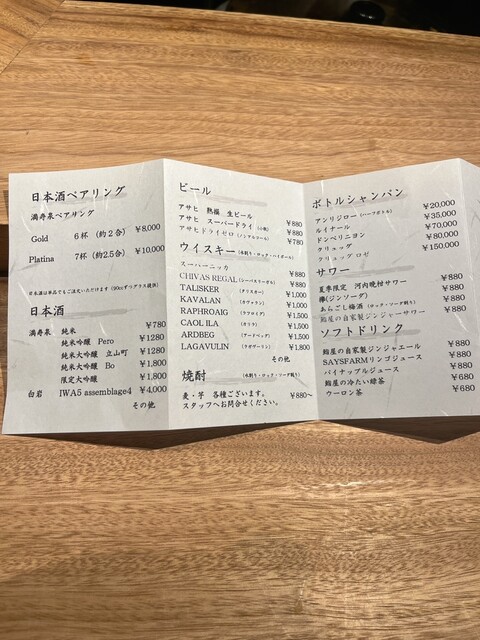 日本酒ペアリング
満寿泉ペアリング
Gold 6杯（約２合） ¥8,000
Platina 7杯（約2.5合） ¥10,000
日本酒は単品でもご注文いただけます（90ccずつグラス提供）
日本酒
満寿泉 純米 ¥780
純米吟醸 Pero ¥1280
純米大吟醸 立山町 ¥1280
純米大吟醸 Bo ¥1,800
限定大吟醸 ¥1,800
白岩 IWA5 assemblage4 ¥4,000
その他
ビール
アサヒ 熟撰 生ビール ¥880
アサヒ スーパードライ（小瓶） ¥880
アサヒドライゼロ（ノンアルコール） ¥780
ウイスキー（水割り・ロック・ハイボール）
スーパーニッカ ¥880
CHIVAS REGAL（シーバスリーガル） ¥880
TALISKER（タリスカー） ¥1,000
KAVALAN（カヴァラン） ¥1,000
RAPHROAIG（ラフロイグ） ¥1,500
CAOL ILA（カリラ） ¥1,500
ARDBEG（アードベッグ） ¥1,500
LAGAVULIN（ラガヴーリン） ¥1,800
その他
焼酎（水割り・ロック・ソーダ割り）
麦・芋 各種ございます。 ¥880～
スタッフへお問合せください。
ボトルシャンパン
アンリジロー（ハーフボトル） ¥20,000
ルイナール ¥35,000
ドンペリニヨン ¥70,000
クリュッグ ¥80,000
クリュッグ ロゼ ¥150,000
サワー
夏季限定 河内晩柑サワー ¥880
檸（ジンソーダ） ¥880
あらごし梅酒（ロック・ソーダ割り） ¥880
鮨屋の自家製ジンジャーサワー ¥880
ソフトドリンク
鮨屋の自家製ジンジャエール ¥880
SAYSFARMリンゴジュース ¥880
パイナップルジュース ¥680
鮨屋の冷たい緑茶 ¥680
ウーロン茶 ¥680